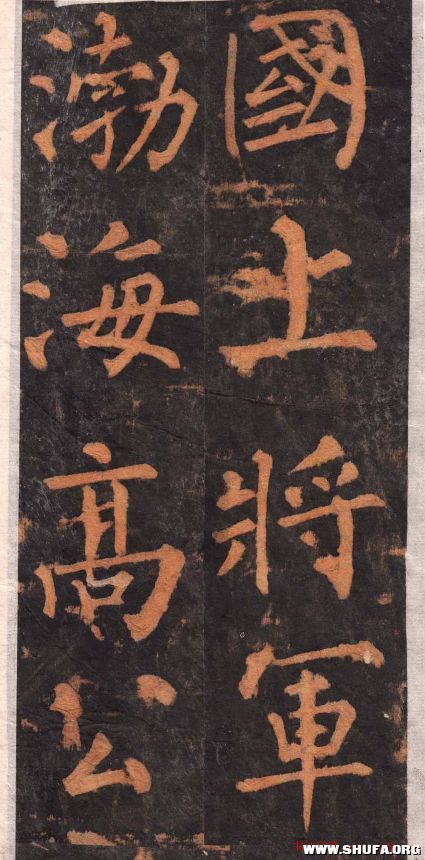 國上將軍
渤海高公
WWW.SHUFA.ORG